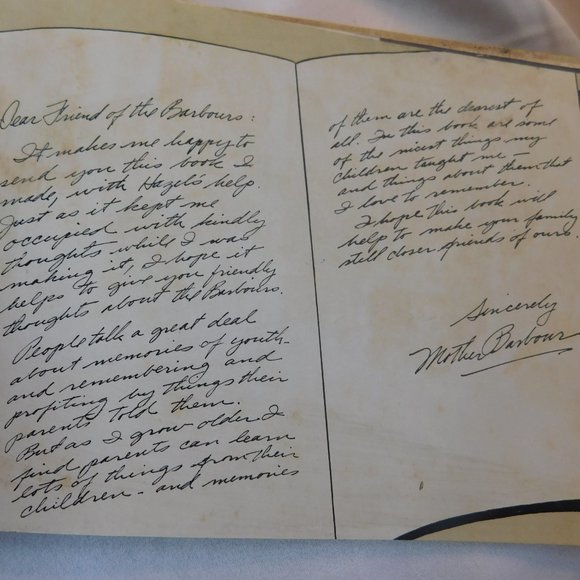 Dear Friend of the Barbours:
It makes me happy to
send you this book I
made, with Hazel's help.
Just as it kept me
occupied with kindly
thoughts while I was
making it, I hope it
helps to give you friendly
thoughts about the Barbours.
People talk a great deal
about memories of youth-
and remembering and
profiting by things their
parents told them.
But as I grow older I
find parents can learn
lots of things from their
children - and memories
of them are the dearest of
all. In this book are some
of the nicest things my
children taught me -
and things about them that
I love to remember.
I hope this book will
help to make your family
still closer friends of ours.
Sincerely
Mother Barbour